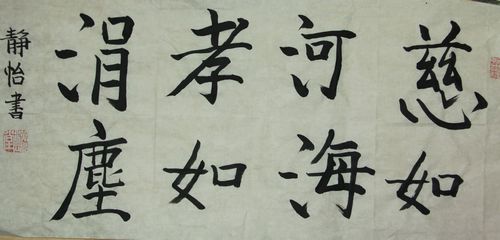 慈如
河海
孝如
涓塵
靜怡書